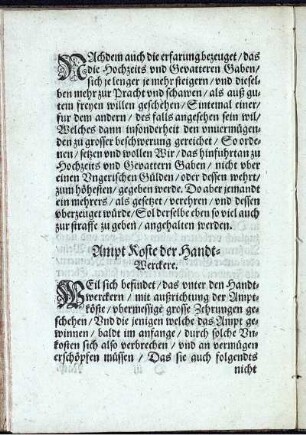 NAchdem auch die erfarung bezeuget / das
die Hochzeits vnd Gevatteren Gaben /
sich je lenger je mehr steigern / vnd diesel-
ben mehr zur Pracht vnd schawen / als auß gu-
tem freyen willen geschehen / Sintemal einer /
fur dem andern / des falls angesehen sein wil /
Welches dann insonderheit den vnuermügen-
den zu grosser beschwerung gereichet / So orde-
nen / setzen vnd wollen Wir / das hinfuhrtan zu
Hochzeits vnd Gevattern Gaben / nicht vber
einen Vngerischen Gülden / oder dessen wehrt /
zum höhesten / gegeben werde. Do aber jemandt
ein mehrers / als gesetzet / verehren / vnd dessen
vberzeuget würde / Sol derselbe eben so viel auch
zur straffe zu geben / angehalten werden.
Ampt Koste der Handt-
Werckere.
WEil sich befindet / das vnter den Handt-
werckern / mit außrichtung der Ampt-
köste / vbermessige grosse Zehrungen ge-
schehen / Vnd die jenigen welche das Ampt ge-
winnen / baldt im anfange / durch solche Vn-
kosten sich also verbrechen / vnd an vermügen
erschöpfen müssen / Das sie auch folgendts
nicht